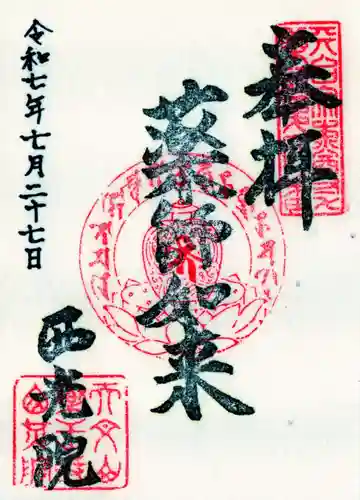 奉拝
薬師如来
西光院
令和七年七月二十七日